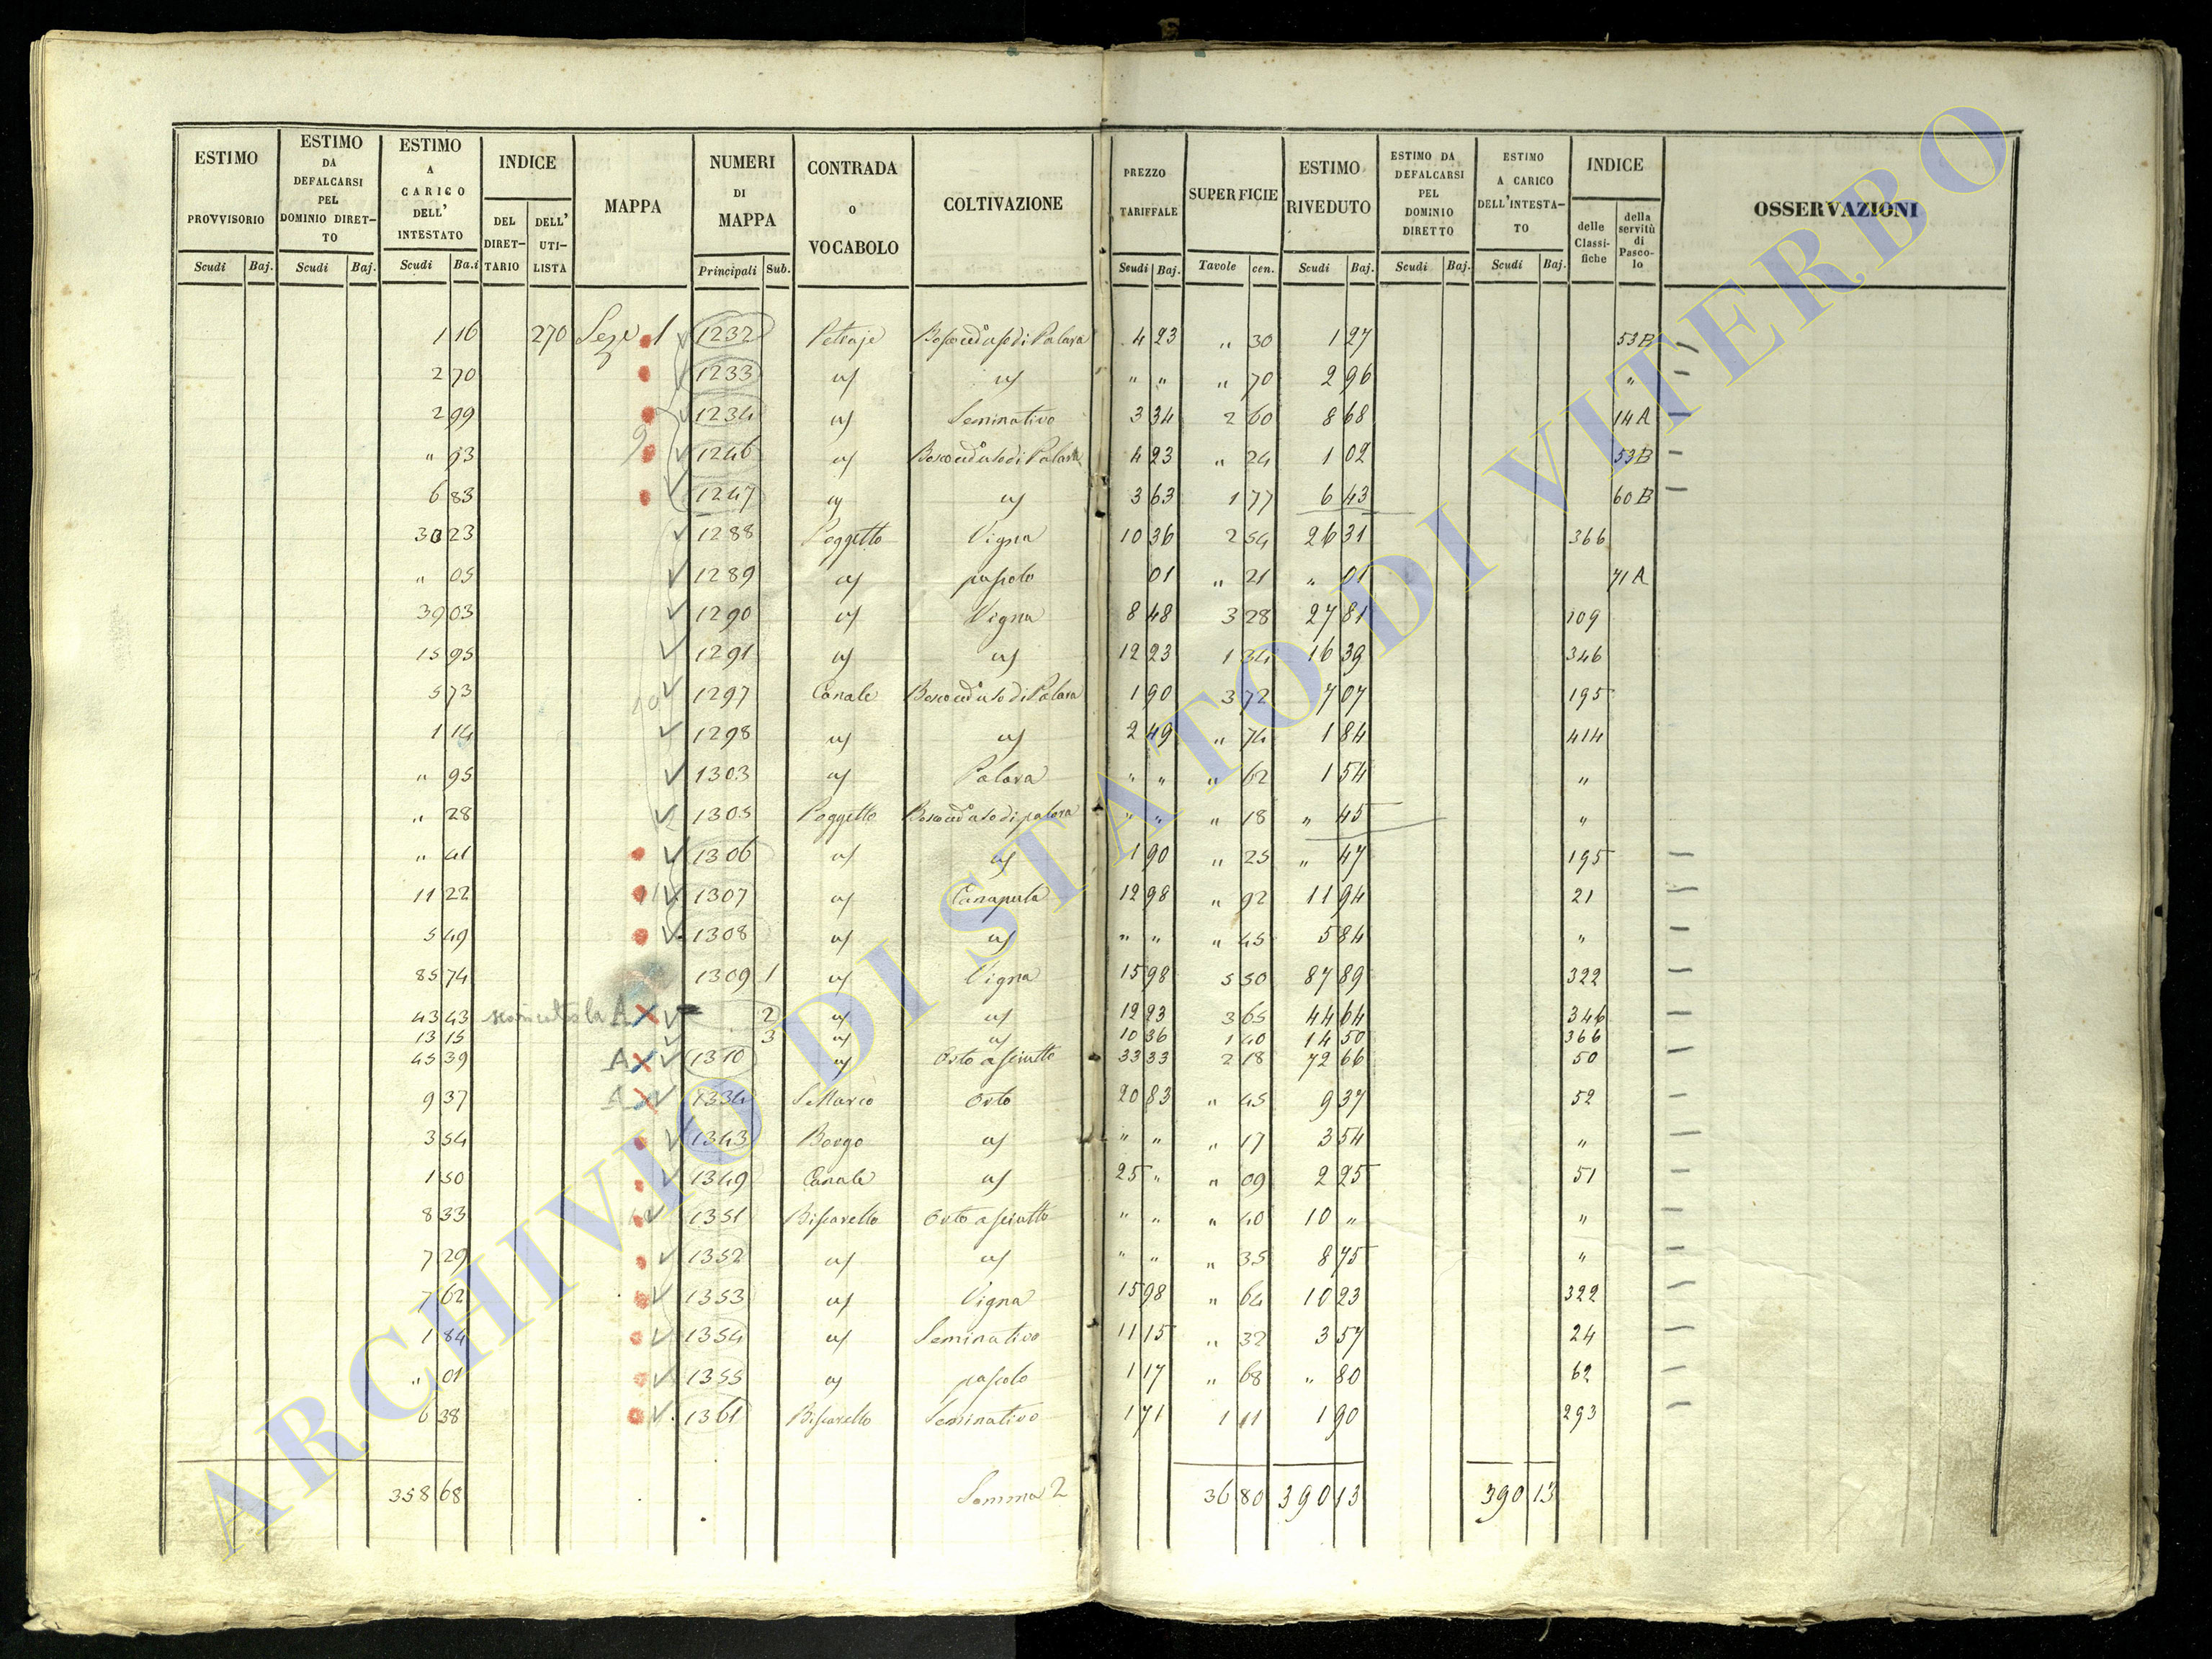 ESTIMO PROVVISORIO | ESTIMO DA DEFALCARSI PEL DOMINIO DIRETTO | ESTIMO A CARICO DELL' INTESTATO | INDICE | MAPPA | NUMERI DI MAPPA | CONTRADA O VOCABOLO | COLTIVAZIONE | PREZZO TARIFFALE | SUPERFICIE | ESTIMO RIVEDUTO | ESTIMO DA DEFALCARSI PEL DOMINIO DIRETTO | ESTIMO A CARICO DELL'INTESTATO | INDICE | OSSERVAZIONI
Scudi | Baj. | Scudi | Baj. | Scudi | Ba.i | DEL DIRETTARIO | DELL' UTILISTA | Principali | Sub. | Scudi | Baj. | Tavole | cen. | Scudi | Baj. | Scudi | Baj. | Scudi | Baj. | delle Classifiche | della servitù di Pascolo
1 16 | 270 | Sez. 1 | 1232 | Petraje | Bosco ceduo di Palara | 4 23 | " 30 | 1 27 | 53B
2 70 | 1233 | " " | " 70 | 2 96 | "
2 99 | 1234 | Seminativo | 3 34 | 2 60 | 8 68 | 14A
" 93 | 1246 | Bosco ceduo di Palara | 4 23 | " 24 | 1 02 | 53B
6 83 | 1247 | 3 63 | 1 77 | 6 43 | 60B
30 23 | 1288 | Poggetto | Vigna | 10 36 | 2 54 | 26 31 | 366
" 05 | 1289 | pascolo | 01 | " 21 | " 01 | 71A
39 03 | 1290 | Vigna | 8 48 | 3 28 | 27 81 | 109
15 95 | 1291 | 12 23 | 1 34 | 16 39 | 346
5 73 | 1297 | Canale | Bosco ceduo di Palara | 1 90 | 3 72 | 7 07 | 195
1 14 | 1298 | 2 49 | " 74 | 1 84 | 414
" 95 | 1303 | Palara | " " | " 62 | 1 54 | "
" 28 | 1305 | Poggetto | Bosco ceduo di palara | " " | " 18 | " 45 | "
" 41 | 1306 | 1 90 | " 25 | " 47 | 195
11 22 | 1307 | Canapula | 12 98 | " 92 | 11 94 | 21
5 49 | 1308 | " " | " 45 | 5 84 | "
85 74 | 1309 | 1 | Vigna | 15 98 | 5 50 | 87 89 | 322
43 43 | A | 2 | 12 23 | 3 65 | 44 64 | 346
13 15 | 3 | 10 36 | 1 40 | 14 50 | 366
45 39 | A | 1310 | Orto asciutto | 33 33 | 2 18 | 72 66 | 50
9 37 | A | 1334 | Orto | 20 83 | " 45 | 9 37 | 52
3 54 | 1343 | Borgo | " " | " 17 | 3 54 | "
1 50 | 1349 | Canale | 25 " | " 09 | 2 25 | 51
8 33 | 1351 | Biscarello | Orto asciutto | " " | " 40 | 10 " | "
7 29 | 1352 | " " | " 35 | 8 75 | "
7 62 | 1353 | Vigna | 15 98 | " 64 | 10 23 | 322
1 84 | 1354 | Seminativo | 11 15 | " 32 | 3 57 | 24
" 01 | 1355 | pascolo | 1 17 | " 68 | " 80 | 62
6 38 | 1361 | Biscarello | Seminativo | 1 71 | 1 11 | 1 90 | 293
358 68 | Somma 2 | 36 80 | 390 13 | 390 13
ARCHIVIO DI STATO DI VITERBO